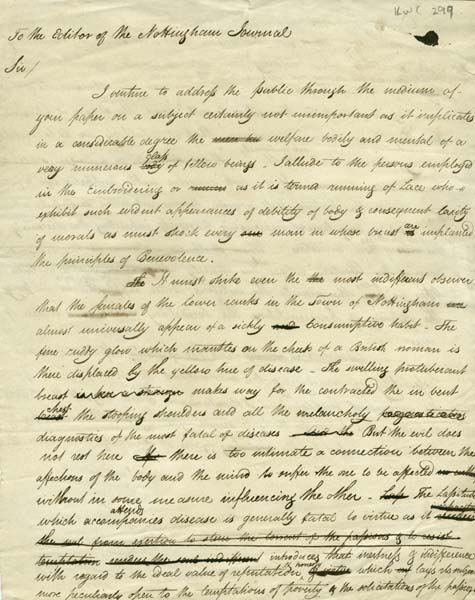 KWC 299
To the Editor of the Nottingham Journal
Sir/
I venture to address the public through the medium of
your paper on a subject certainly not unimportant as it implicates
in a considerable degree the welfare bodily and mental of a
class
very numerous body of fellow beings. I allude to the persons employed
in the Embroidering or as it is termed running of Lace who
exhibit such evident appearances of debility of body & consequent laxity
are
of morals as must shock every one man in whose breast is implanted
the principles of Benevolence.
The It must strike even the the most indifferent observer
that the females of the lower ranks in the Town of Nottingham
almost universally appear of a sickly and Consumptive habit - The
fine ruddy glow which mantles on the cheek of a British woman is
there displaced by the yellow hue of disease - The swelling protuberant
breast makes way for the contracted the in bent
chest
breast the stooping shoulders and all the melancholy
diagnostics of the most fatal of diseases But the evil does
not rest here there is too intimate a connection between the
affections of the body and the mind to suffer the one to be affected
without in some measure influencing the other - The Lassitude
which accompanies disease is generally fatal to virtue as it
the soul from exertion to stem the torrent of the passions & to resist
temptation renders the soul indifferent introduces that & indifference
with regard to the ideal value of reputation & virtue which lays
more peculiarly open to the temptations of poverty & the solicitations of the passions